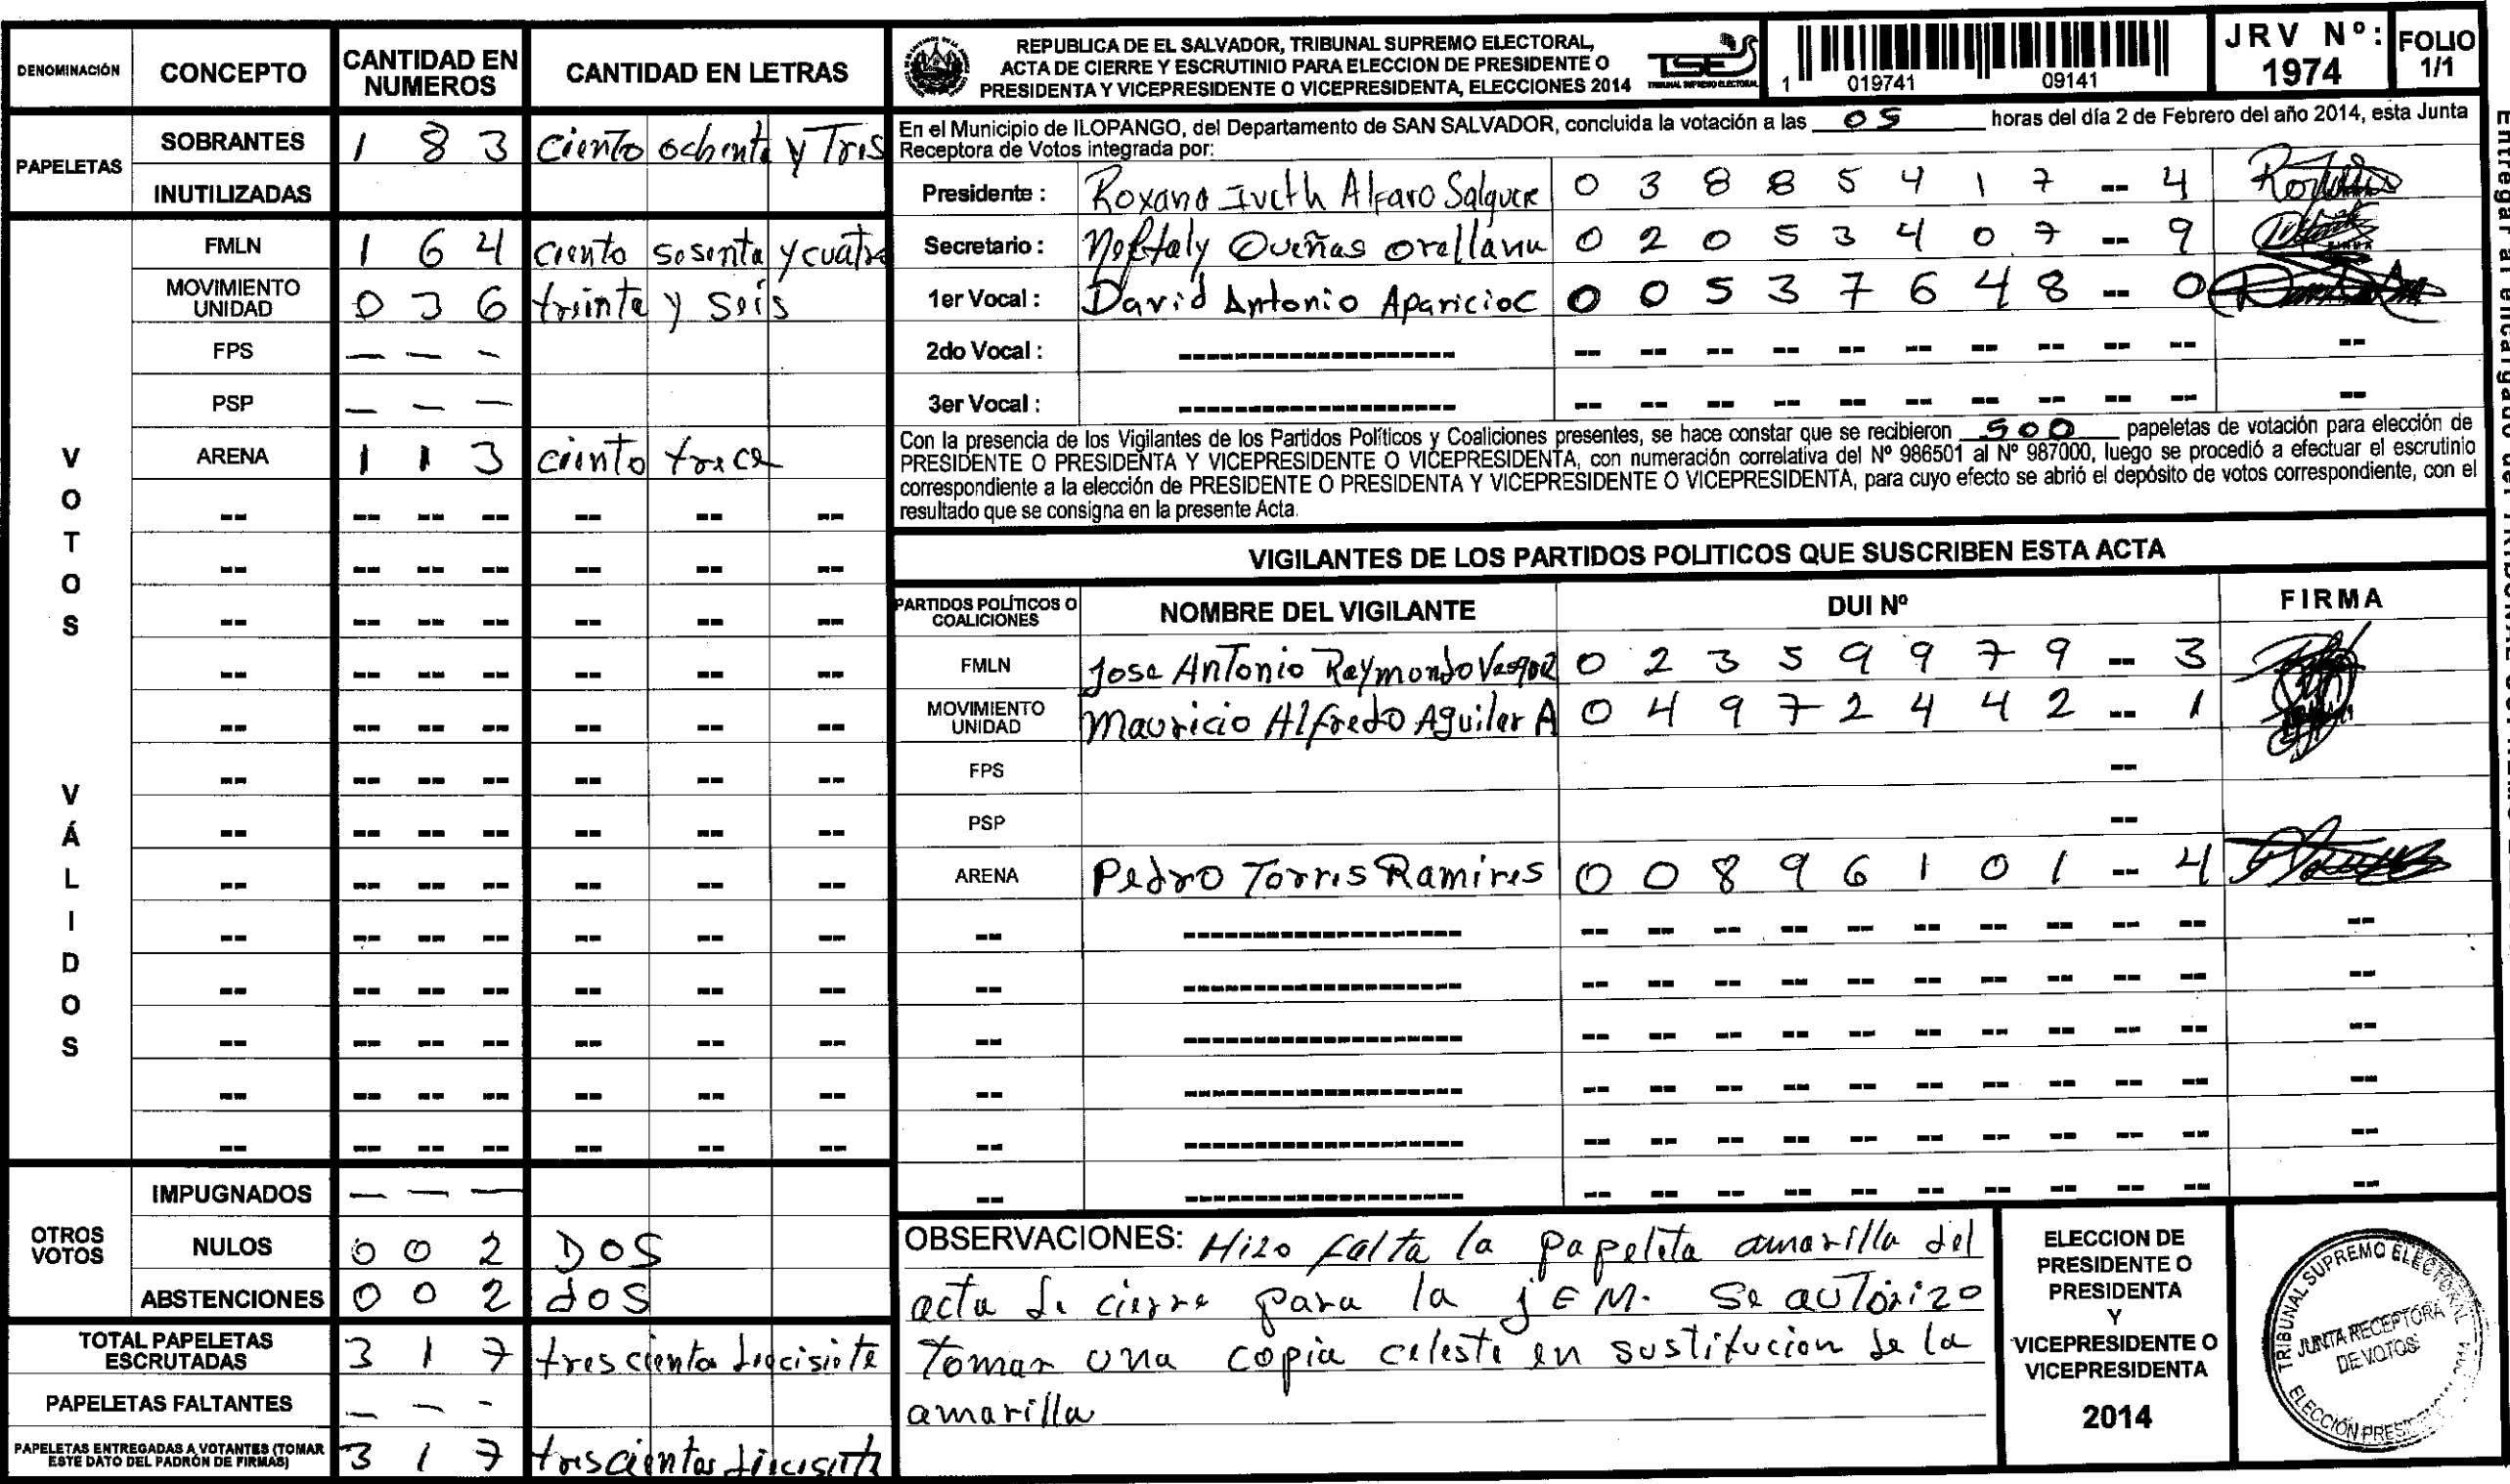 DENOMINACIÓN CONCEPTO CANTIDAD EN NUMEROS CANTIDAD EN LETRAS
PAPELETAS
SOBRANTES 1 8 3 Ciento ochenta y Tres
INUTILIZADAS
VOTOS VÁLIDOS
FMLN 1 6 4 ciento sesenta y cuatro
MOVIMIENTO UNIDAD 0 3 6 treinta y seis
FPS — — -
PSP — — —
ARENA 1 1 3 ciento trece
-- -- -- -- -- -- --
-- -- -- -- -- -- --
-- -- -- -- -- -- --
-- -- -- -- -- -- --
-- -- -- -- -- -- --
-- -- -- -- -- -- --
-- -- -- -- -- -- --
-- -- -- -- -- -- --
-- -- -- -- -- -- --
-- -- -- -- -- -- --
-- -- -- -- -- -- --
-- -- -- -- -- -- --
-- -- -- -- -- -- --
OTROS VOTOS
IMPUGNADOS — — —
NULOS 0 0 2 DOS
ABSTENCIONES 0 0 2 dos
TOTAL PAPELETAS ESCRUTADAS 3 1 7 trescientos diecisiete
PAPELETAS FALTANTES — - -
PAPELETAS ENTREGADAS A VOTANTES (TOMAR ESTE DATO DEL PADRÓN DE FIRMAS) 3 1 7 trescientos diecisiete
REPUBLICA DE EL SALVADOR, TRIBUNAL SUPREMO ELECTORAL,
ACTA DE CIERRE Y ESCRUTINIO PARA ELECCION DE PRESIDENTE O
PRESIDENTA Y VICEPRESIDENTE O VICEPRESIDENTA, ELECCIONES 2014
TSE
TRIBUNAL SUPREMO ELECTORAL
1 019741 09141
JRV Nº: 1974
FOLIO 1/1
En el Municipio de ILOPANGO, del Departamento de SAN SALVADOR, concluida la votación a las 05 horas del día 2 de Febrero del año 2014, esta Junta
Receptora de Votos integrada por:
Presidente : Roxana Iveth Alfaro Salguer 0 3 8 8 5 4 1 7 -- 4
Secretario : Neftaly Dueñas Orellana 0 2 0 5 3 4 0 7 -- 9
1er Vocal : David Antonio Aparicio C 0 0 5 3 7 6 4 8 -- 0
2do Vocal : -------------------- -- -- -- -- -- -- -- -- -- -- --
3er Vocal : -------------------- -- -- -- -- -- -- -- -- -- -- --
Con la presencia de los Vigilantes de los Partidos Políticos y Coaliciones presentes, se hace constar que se recibieron 500 papeletas de votación para elección de
PRESIDENTE O PRESIDENTA Y VICEPRESIDENTE O VICEPRESIDENTA, con numeración correlativa del Nº 986501 al Nº 987000, luego se procedió a efectuar el escrutinio
correspondiente a la elección de PRESIDENTE O PRESIDENTA Y VICEPRESIDENTE O VICEPRESIDENTA, para cuyo efecto se abrió el depósito de votos correspondiente, con el
resultado que se consigna en la presente Acta.
VIGILANTES DE LOS PARTIDOS POLITICOS QUE SUSCRIBEN ESTA ACTA
PARTIDOS POLÍTICOS O COALICIONES NOMBRE DEL VIGILANTE DUI Nº FIRMA
FMLN Jose Antonio Raymondo Vasquez 0 2 3 5 9 9 7 9 -- 3
MOVIMIENTO UNIDAD Mauricio Alfredo Aguilar A 0 4 9 7 2 4 4 2 -- 1
FPS --
PSP --
ARENA Pedro Torres Ramires 0 0 8 9 6 1 0 1 -- 4
-- -------------------- -- -- -- -- -- -- -- -- -- -- --
-- -------------------- -- -- -- -- -- -- -- -- -- -- --
-- -------------------- -- -- -- -- -- -- -- -- -- -- --
-- -------------------- -- -- -- -- -- -- -- -- -- -- --
-- -------------------- -- -- -- -- -- -- -- -- -- -- --
-- -------------------- -- -- -- -- -- -- -- -- -- -- --
OBSERVACIONES: Hizo falta la papeleta amarilla del
acta de cierre para la JEM. Se autorizo
Tomar una copia celeste en sustitucion de la
amarilla
ELECCION DE
PRESIDENTE O
PRESIDENTA
Y
VICEPRESIDENTE O
VICEPRESIDENTA
2014
TRIBUNAL SUPREMO ELECTORAL
JUNTA RECEPTORA
DE VOTOS
Entregar al encargado del